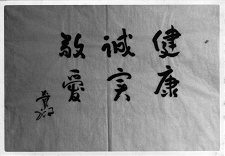 健康
诚实
敬爱